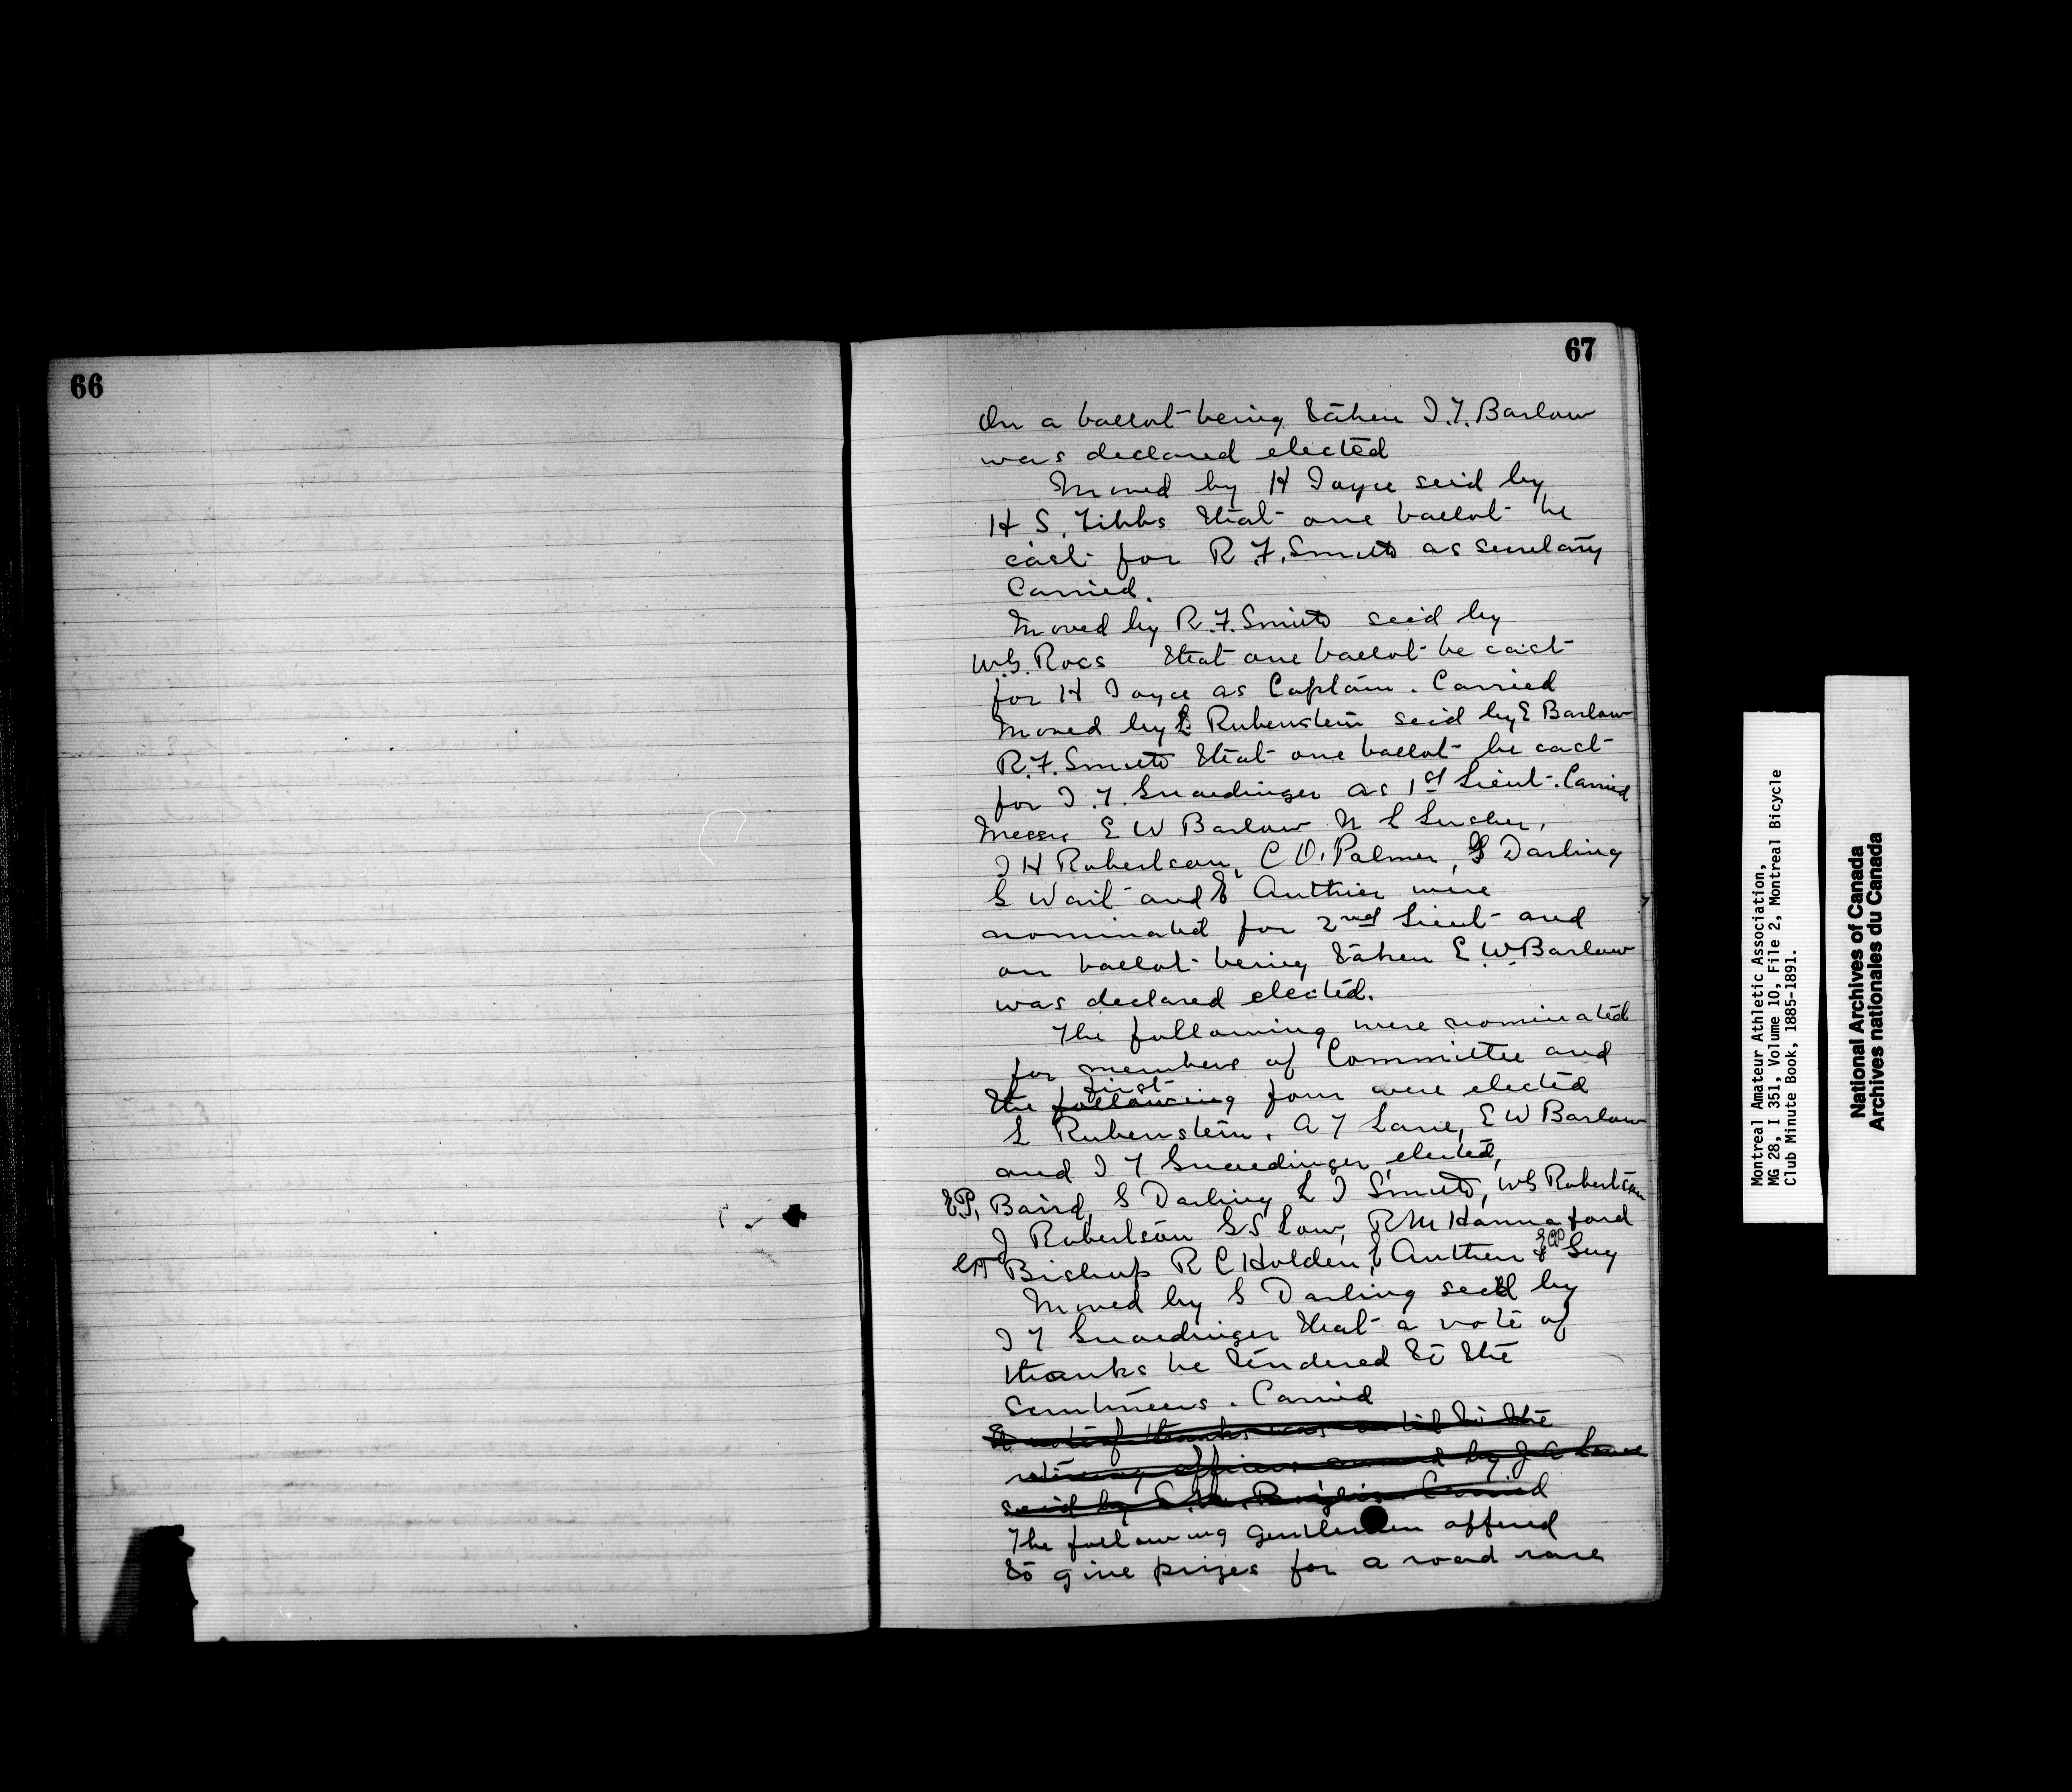 66
67
On a ballot being taken J.T. Barlow
was declared elected
Moved by H Joyce sec'd by
H S. Tibbs that one ballot be
cast for R.F. Smith as secretary
Carried.
Moved by R.F. Smith sec'd by
W.G. Ross that one ballot be cast
for H Joyce as Captain. Carried
Moved by L Rubenstein sec'd by E Barlow
R.F. Smith that one ballot be cast
for J.T. Gnaedinger as 1st Lieut. Carried
Messrs E W Barlow N L Lusher,
J H Robertson, C O. Palmer, G Darling
G Wait and E Authier were
nominated for 2nd Lieut and
on ballot being taken E. W. Barlow
was declared elected.
The following were nominated
for members of Committee and
first
the following four were elected
L Rubenstein, A T Lane, E W Barlow
and J T Gnaedinger elected,
E.P. Baird, G Darling L J Smith, W G Robertson
J Robertson G S Low, R M Hannaford
Bishop R C Holden, E Authier & Guy
Moved by G Darling sec'd by
J T Gnaedinger that a vote of
thanks be tendered to the
scrutineers. Carried
A vote of thanks was voted to the
retiring officers moved by J A Lane
sec'd by Carried
The following gentlemen offered
to give prizes for a road race
Montreal Amateur Athletic Association,
MG 28, I 351, Volume 10, File 2, Montreal Bicycle
Club Minute Book, 1885-1891.
National Archives of Canada
Archives nationales du Canada